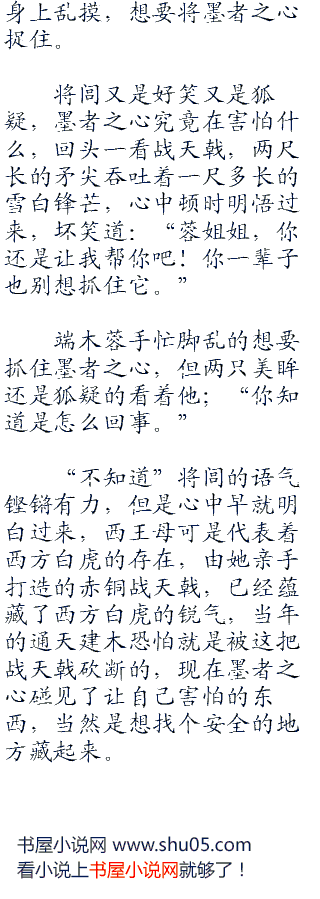 身上乱摸，想要将墨者之心
捉住。
将闾又是好笑又是狐
疑，墨者之心究竟在害怕什
么，回头一看战天戟，两尺
长的矛尖吞吐着一尺多长的
雪白锋芒，心中顿时明悟过
来，坏笑道：“蓉姐姐，你
还是让我帮你吧！你一辈子
也别想抓住它。”
端木蓉手忙脚乱的想要
抓住墨者之心，但两只美眸
还是狐疑的看着他；“你知
道是怎么回事。”
“不知道”将闾的语气
铿锵有力，但是心中早就明
白过来，西王母可是代表着
西方白虎的存在，由她亲手
打造的赤铜战天戟，已经蕴
藏了西方白虎的锐气，当年
的通天建木恐怕就是被这把
战天戟砍断的，现在墨者之
心碰见了让自己害怕的东
西，当然是想找个安全的地
方藏起来。
书屋小说网 www.shu05.com
看小说上书屋小说网就够了！